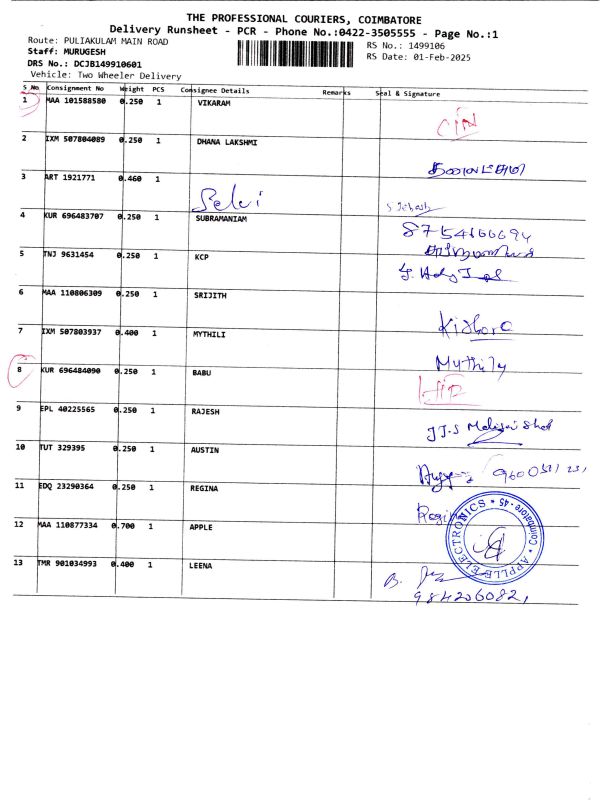 THE PROFESSIONAL COURIERS, COIMBATORE
Delivery Runsheet - PCR - Phone No.:0422-3505555 - Page No.:1
Route: PULIAKULAM MAIN ROAD
Staff: MURUGESH
DRS No.: DCJB149910601
Vehicle: Two Wheeler Delivery
RS No.: 1499106
RS Date: 01-Feb-2025
S.No. Consignment No Weight PCS Consignee Details Remarks Seal & Signature
1 MAA 101588580 0.250 1 VIKARAM
2 IXM 507804089 0.250 1 DHANA LAKSHMI
3 ART 1921771 0.460 1 Selvi
4 KUR 696483707 0.250 1 SUBRAMANIAM
8754166694
5 TNJ 9631454 0.250 1 KCP
6 MAA 110806309 0.250 1 SRIJITH
Kishore
7 IXM 507803937 0.400 1 MYTHILI
Mythily
8 KUR 696484090 0.250 1 BABU
9 EPL 40225565 0.250 1 RAJESH
10 TUT 329395 0.250 1 AUSTIN
11 EDQ 23290364 0.250 1 REGINA
Regina
12 MAA 110877334 0.700 1 APPLE
APPLLE ELECTRONICS * Coimbatore - 45 *
13 TMR 901034993 0.400 1 LEENA
984206082,